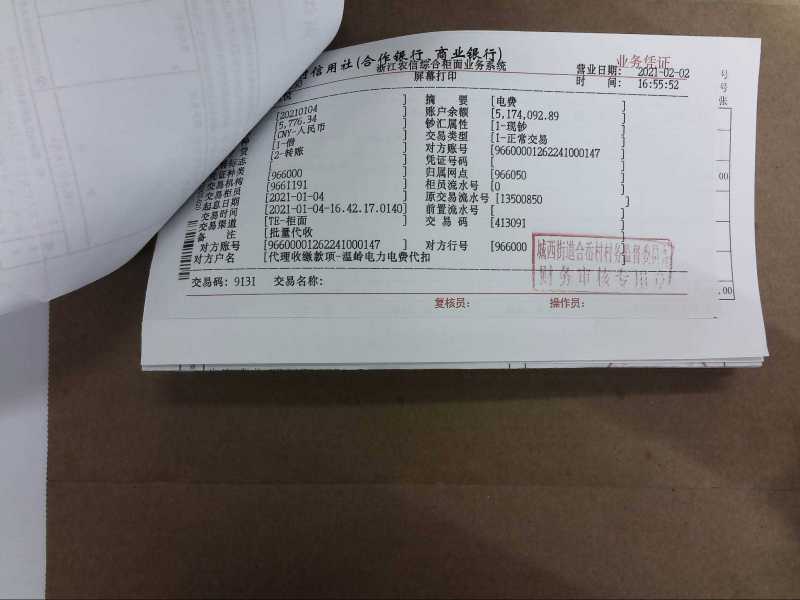 信用社(合作银行 商业银行)
业务凭证
浙江农信综合柜面业务系统
营业日期: 2021-02-02
屏幕打印
时 间: 16:55:52
[20210104 ] 摘 要 [电费 ]
[5,776.34 ] 账户余额 [5,174,092.89 ]
[CNY-人民币 ] 钞汇属性 [1-现钞 ]
[1-借 ] 交易类型 [I-正常交易 ]
[2-转账 ] 对方账号 [96600001262241000147 ]
凭证号码 [ ]
[966000 ] 归属网点 [966050 ]
[9661191 ] 柜员流水号 [0 ]
起息日期 [2021-01-04 ] 原交易流水号 [13500850 ]
交易时间 [2021-01-04-16.42.17.0140] 前置流水号 [ ]
交易渠道 [TE-柜面 ] 交易码 [413091 ]
备 注 [批量代收 ]
对方账号 [96600001262241000147 ] 对方行号 [966000 ]
对方户名 [代理收缴款项-温岭电力电费代扣 ]
城西街道合岙村村务监督委员会
财务审核专用章
交易码: 9131 交易名称:
复核员: 操作员:
号
号
张
00
.00